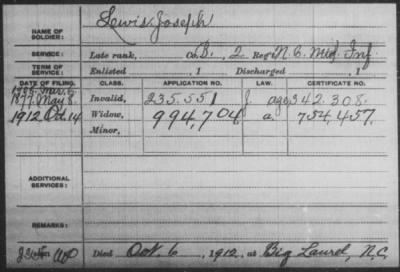 NAME OF SOLDIER: Lewis Joseph
SERVICE: Late rank, Co. D, 2 Reg't N. C. Mtd. Inf.
TERM OF SERVICE: Enlisted , 1 Discharged , 1
DATE OF FILING. CLASS. APPLICATION NO. LAW. CERTIFICATE NO.
1877. May 8. Invalid, 235.551 342.308.
1912 Oct. 14 Widow, 994,704 a. 754,457.
Minor,
ADDITIONAL SERVICES:
REMARKS:
Died Oct. 6, 1912, at Big Laurel, N.C.